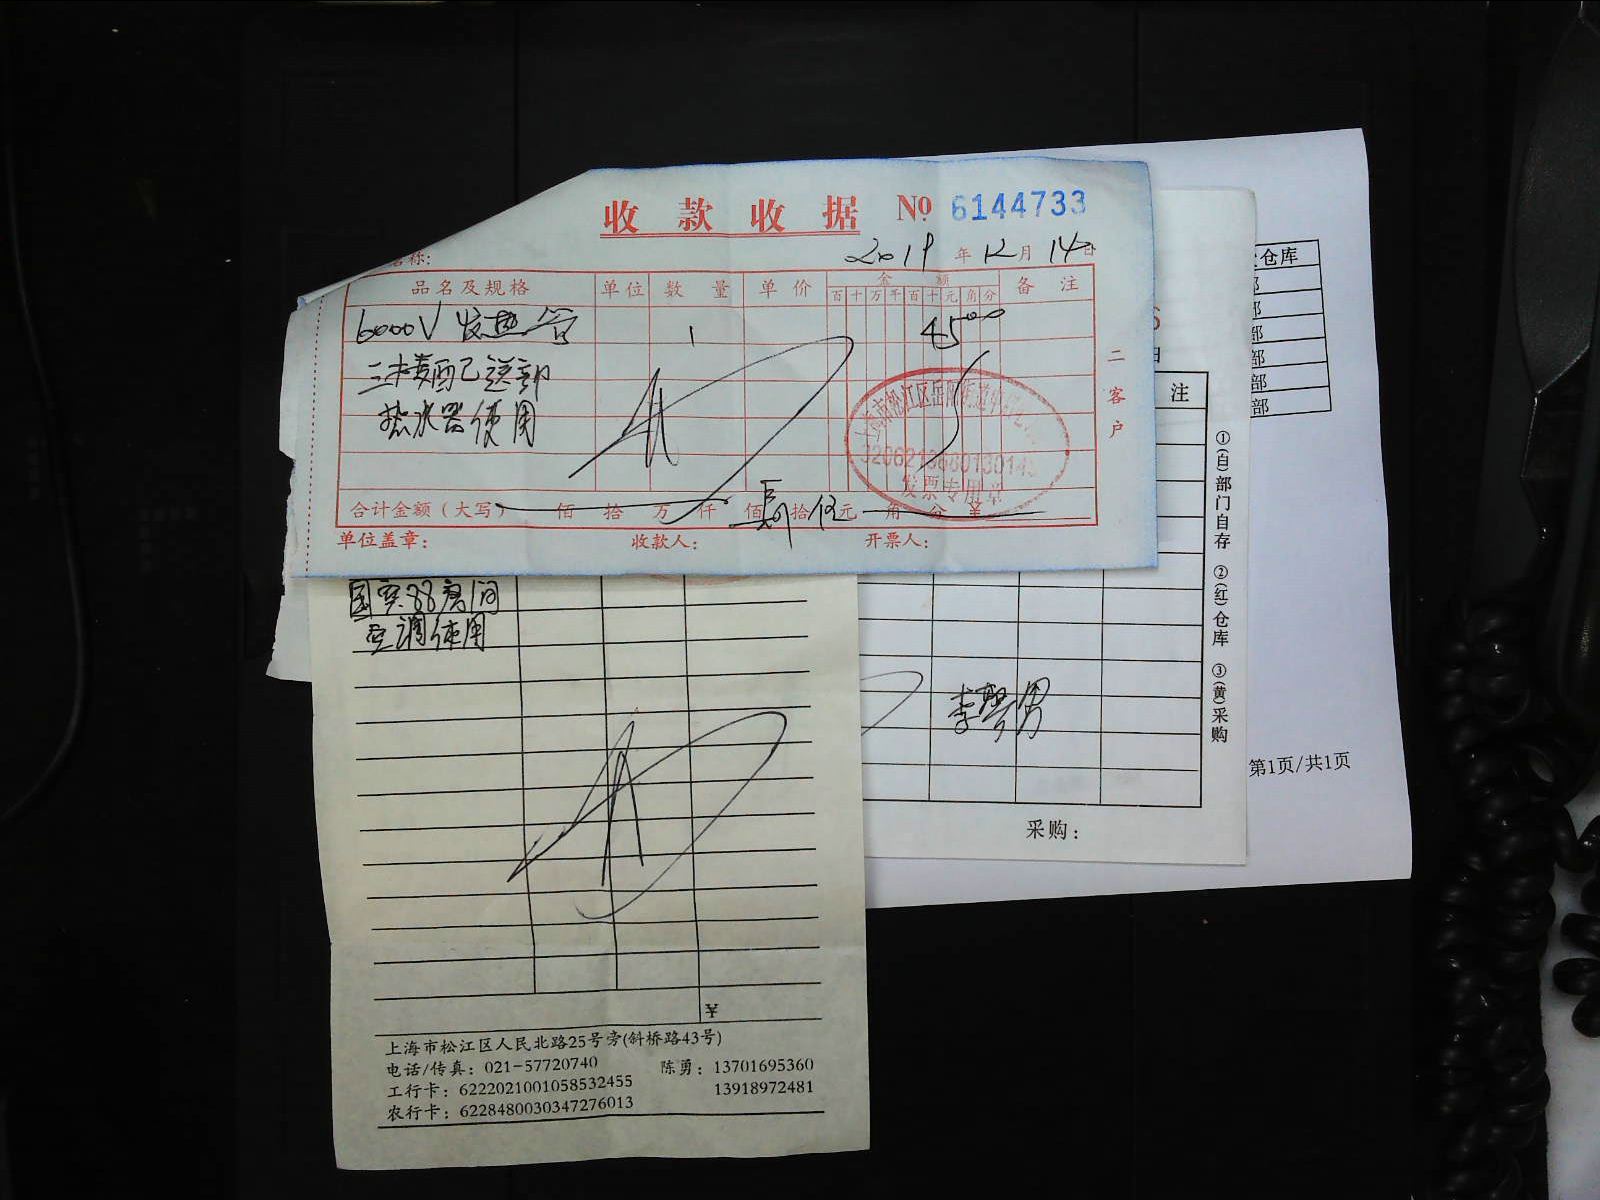 收款收据 № 6144733
2019年12月14日
名称:
品名及规格 单位 数量 单价 金额 备注
百十万千百十元角分
6000V 发热管 1 4500
热水器使用
二客户
发票专用章
合计金额（大写） 佰 拾 万 仟 佰 拾 伍元 角 分 ¥
单位盖章: 收款人: 开票人:
房间
空调使用
¥
上海市松江区人民北路25号旁(斜桥路43号)
电话/传真: 021-57720740 陈勇: 13701695360
工行卡: 6222021001058532455 13918972481
农行卡: 6228480030347276013
注
李琴男
①(自)部门自存 ②(红)仓库 ③(黄)采购
采购:
仓库
部
部
部
部
部
部
第1页/共1页